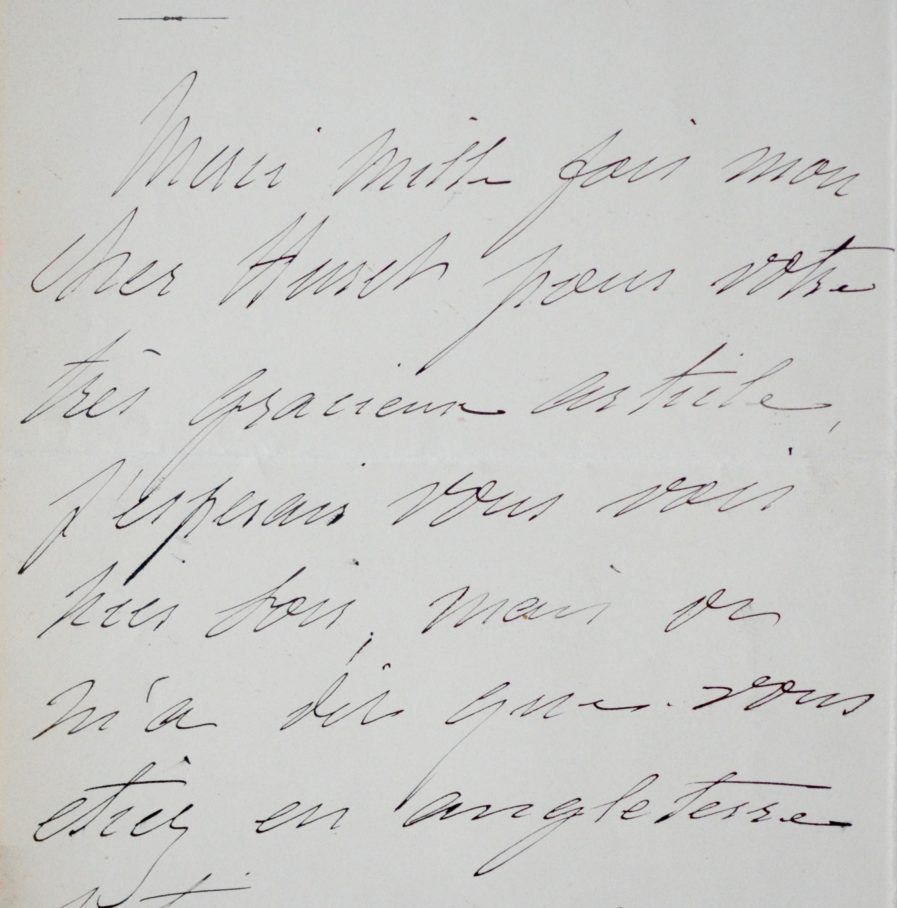 Merci mille fois mon
cher Huret pour votre
très gracieux article,
J'esperais vous voir
hier soir, mais on
m'a dit que vous
etiez en angleterre